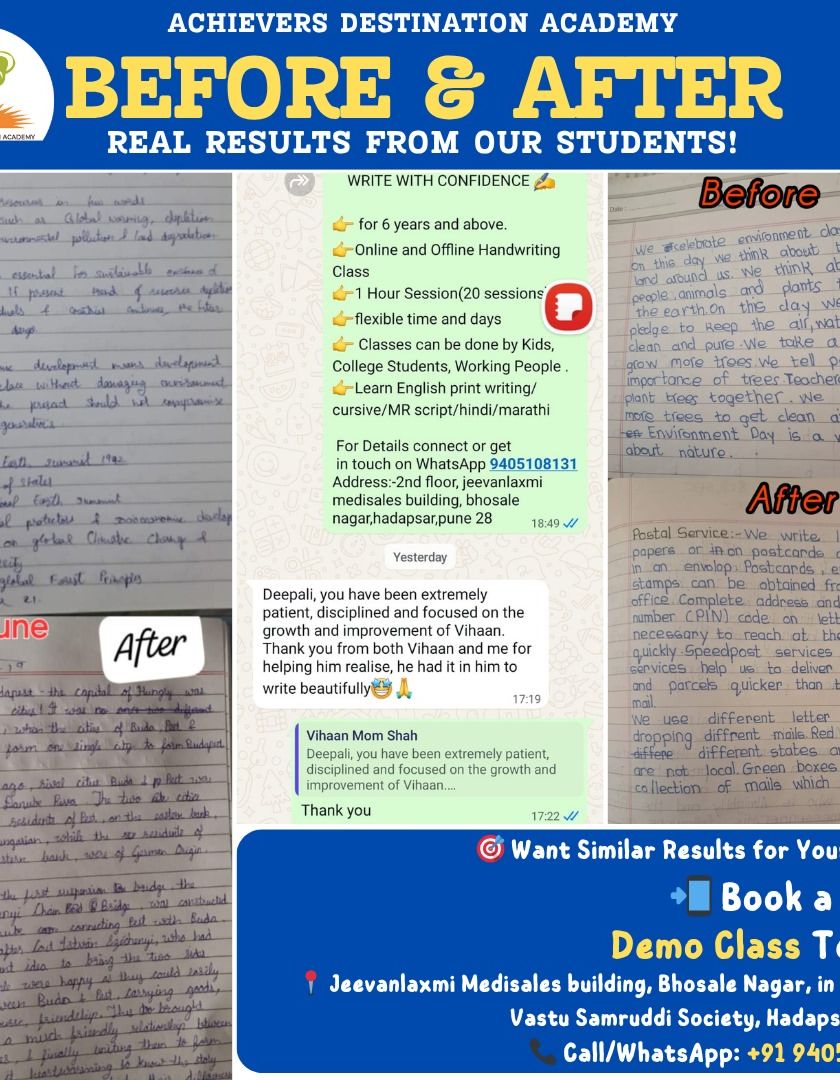 ACHIEVERS DESTINATION ACADEMY
BEFORE & AFTER
REAL RESULTS FROM OUR STUDENTS!
ACADEMY
resources in few words
such as Global warming, depletion
environmental pollution & land degradation
essential for sustainable
If present trend of resource depletion
days.
development means development
place without damaging environment
the present should not compromise
generations.
Earth summit 1992
of states
Earth summit
on global Climatic Change &
global Forest Principles
21.
une
After
the capital of Hungry was
cities! It was no one two different
when the cities of Buda, Pest &
form one single city to form Budapest
ago, rival cities Buda & Pest were
Danube River. The two cities
residents of Pest, on the eastern bank,
Hungarian, while the residents of
western bank, were of German Origin.
the first suspension bridge, the
Chain Bridge, was constructed
connecting Pest with Buda.
after Count István Széchenyi, who had
idea to bring the two
were happy as they could easily
between Buda & Pest, carrying goods,
friendship. This brought
a much friendly relationship between
& finally uniting them to form
heartwarming to know the story
WRITE WITH CONFIDENCE ✍️
👉 for 6 years and above.
👉Online and Offline Handwriting
Class
👉1 Hour Session(20 sessions
👉flexible time and days
👉 Classes can be done by Kids,
College Students, Working People .
👉Learn English print writing/
cursive/MR script/hindi/marathi
For Details connect or get
in touch on WhatsApp 9405108131
Address:-2nd floor, jeevanlaxmi
medisales building, bhosale
nagar,hadapsar,pune 28
18:49
Yesterday
Deepali, you have been extremely
patient, disciplined and focused on the
growth and improvement of Vihaan.
Thank you from both Vihaan and me for
helping him realise, he had it in him to
write beautifully🤩🙏
17:19
Vihaan Mom Shah
Deepali, you have been extremely patient,
disciplined and focused on the growth and
improvement of Vihaan....
Thank you
17:22
Before
Date
We celebrate environment da
on this day we think about
land around us. We think ab
people, animals and plants
the earth. On this day w
pledge to keep the air, wat
clean and pure. We take a
grow more trees. We tell p
importance of trees. Teacher
plant trees together. We
more trees to get clean ai
Environment Day is a
about nature.
After
Postal Service:- We write l
papers or in on postcards
in an envelop. Postcards, e
stamps can be obtained fro
office. Complete address and
number (PIN) code on lett
necessary to reach at the
quickly. Speedpost services
services help us to deliver
and parcels quicker than t
mail.
We use different letter
dropping diffrent mails. Red
diffene different states a
are not local. Green boxes
collection of mails which
🎯 Want Similar Results for You
📲 Book a
Demo Class To
📍 Jeevanlaxmi Medisales building, Bhosale Nagar, in
Vastu Samruddi Society, Hadaps
📞 Call/WhatsApp: +91 9405